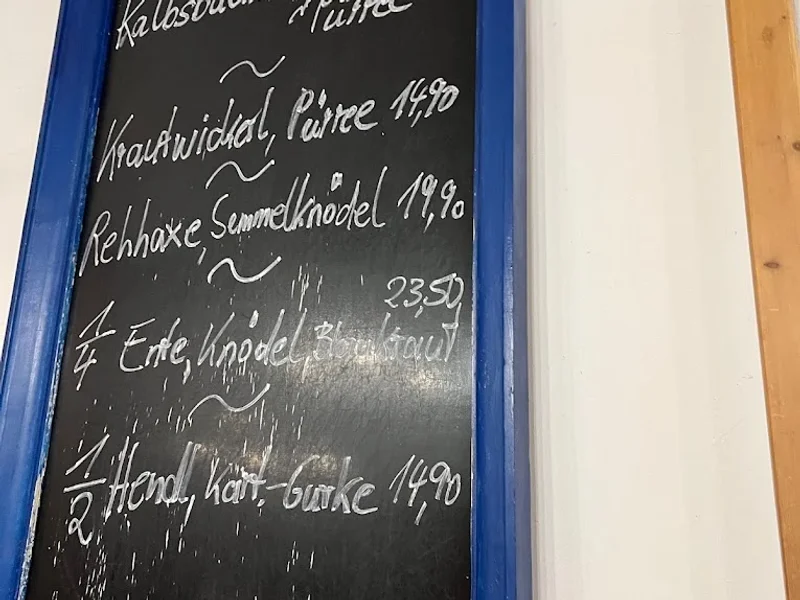 Püree
Krautwickerl, Pürree 14,90
Rehhaxe, Semmelknödel 19,90
23,50
1/4 Ente, Knödel Blaukraut
1/2 Hendl, Kart.-Gurke 14,90